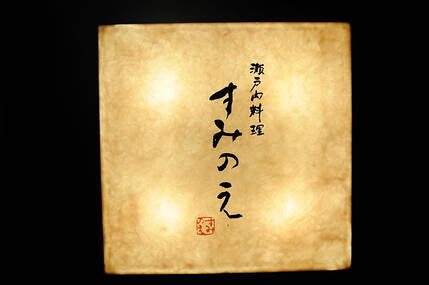 瀬戸内料理
すみのえ